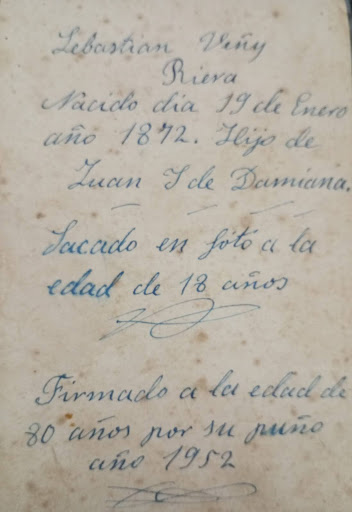 Sebastian Viñy
Riera
Nacido dia 19 de Enero
año 1872. Hijo de
Juan I de Damiana.
Sacado en foto a la
edad de 18 años
Firmado a la edad de
80 años por su puño
año 1952